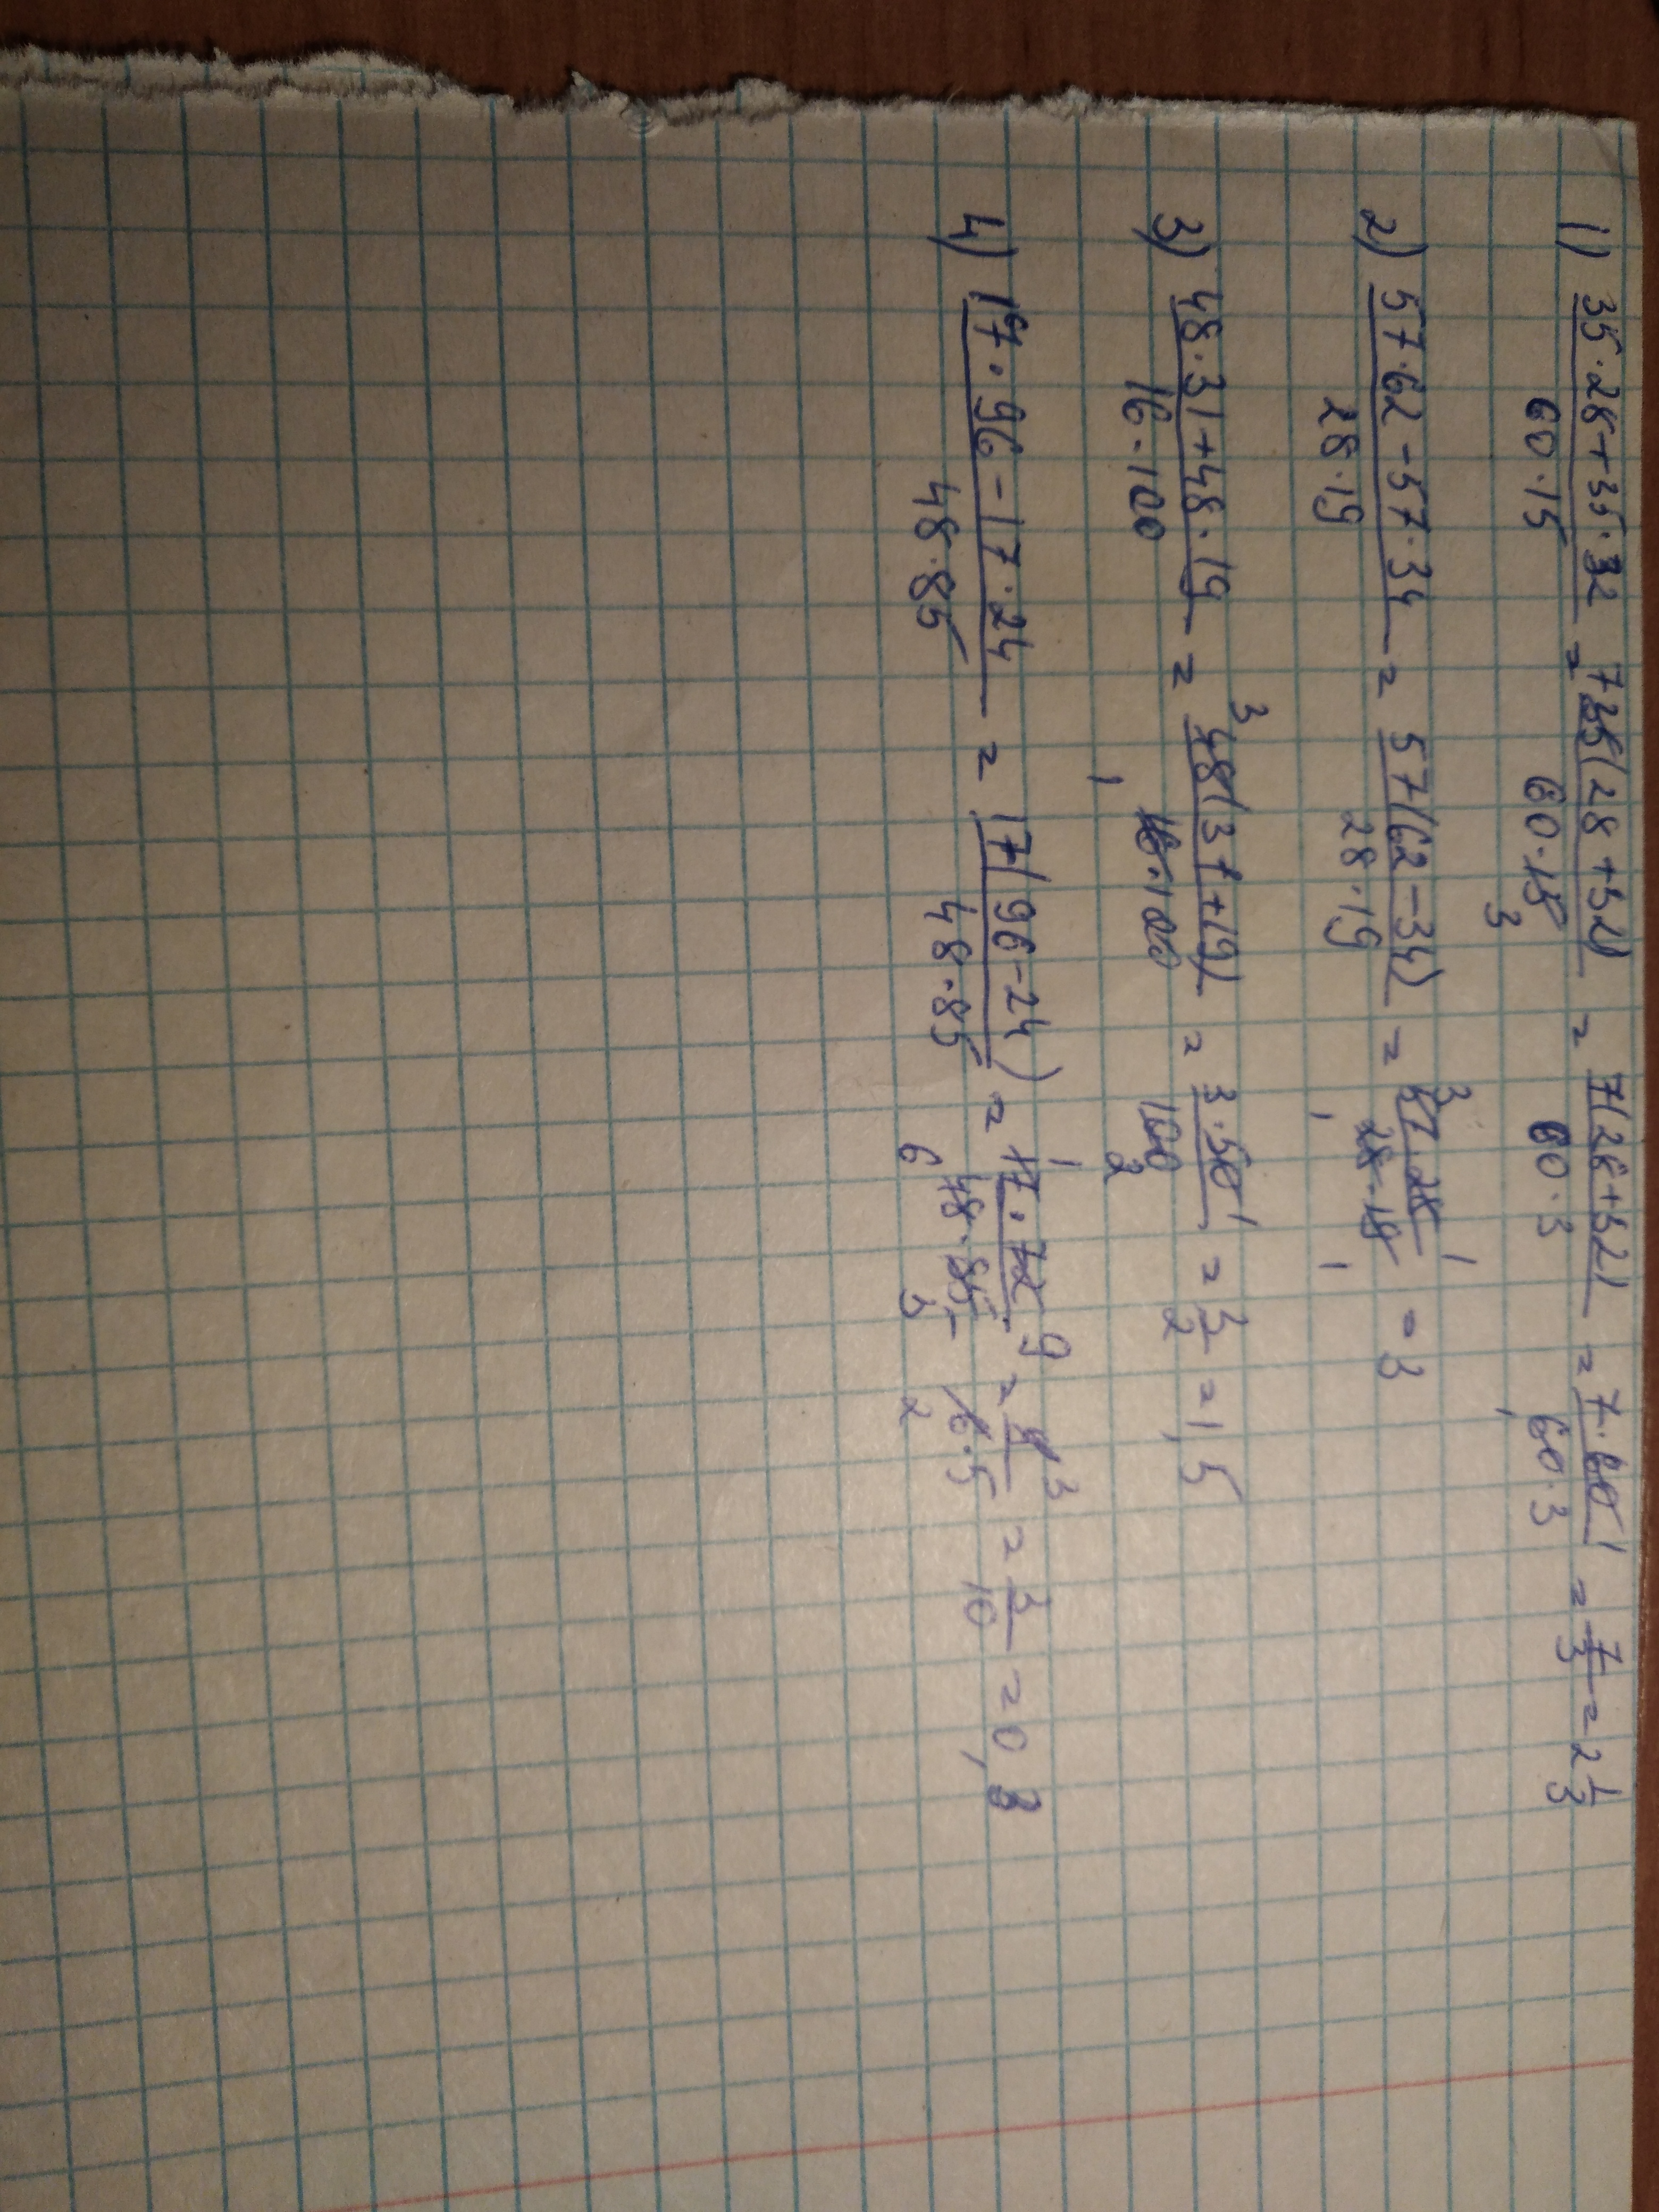 1) (35·28+35·32)/(60·15) = 7 35(28+32)/(60·15 3) = 7(28+32)/(60·3) = 7·60 1/(1 60·3) = 7/3 = 2 1/3
2) (57·62-57·34)/(28·19) = 57(62-34)/(28·19) = 3 57·28 1/(1 28·19 1) = 3
3) (48·31+48·19)/(16·100) = 3 48(31+19)/(1 16·100) = 3·50 1/(100 2) = 3/2 = 1,5
4) (17·96-17·24)/(48·85) = 17(96-24)/(48·85) = 1 17·72 9/(6 48·85 5) = 9 3/(2 6·5) = 3/10 = 0,3